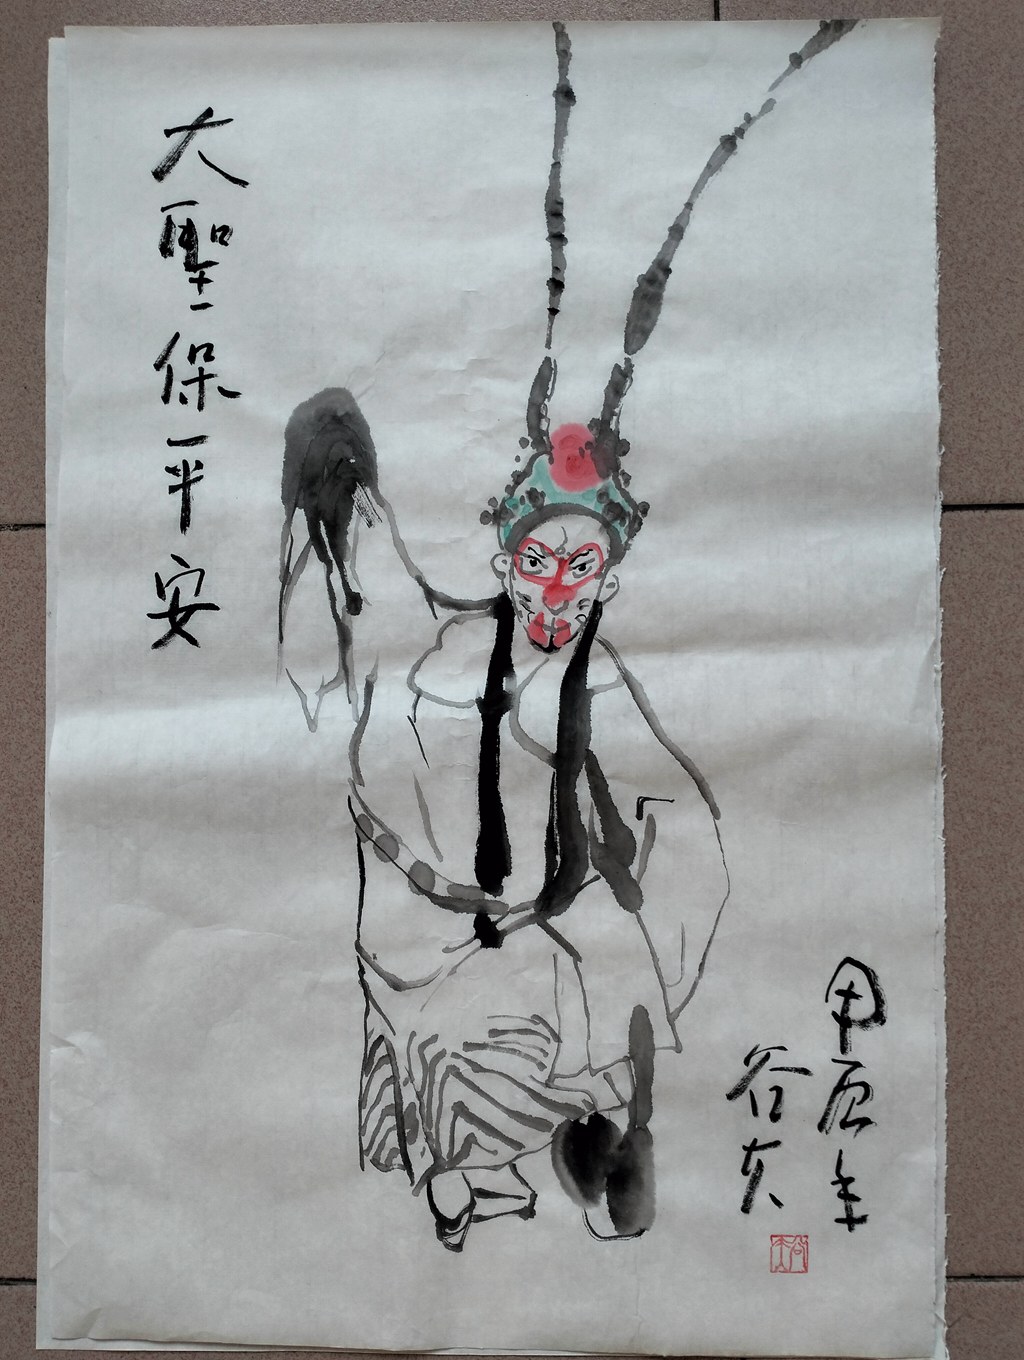 大聖保平安
甲辰年
谷